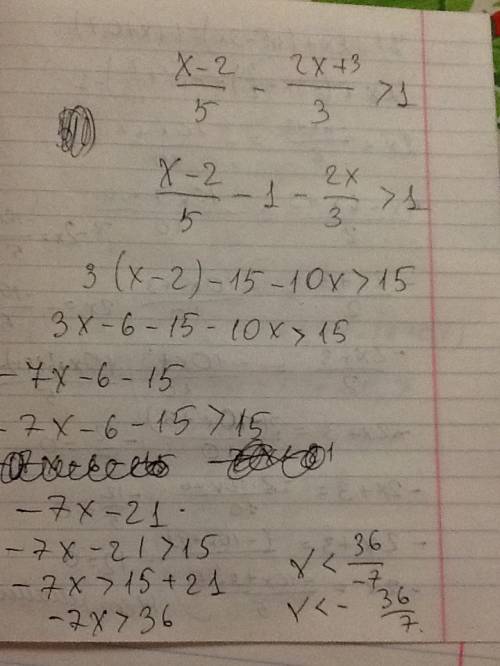 x-2/5 - 2x+3/3 >1
x-2/5 -1- 2x/3 >1
3(x-2)-15-10x>15
3x-6-15-10x>15
-7x-6-15
-7x-6-15>15
-7x-21.
-7x-21>15
-7x>15+21
-7x>36
x< 36/-7
x<- 36/7.